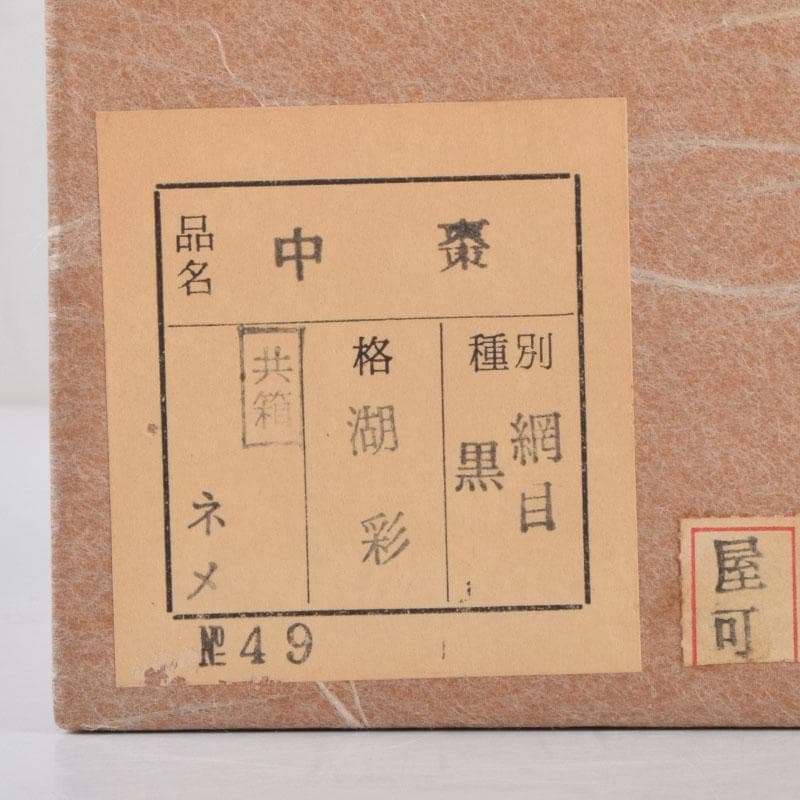 品名 中棗
種別
網目
黒
格
湖彩
共箱
ネメ
№49
屋可